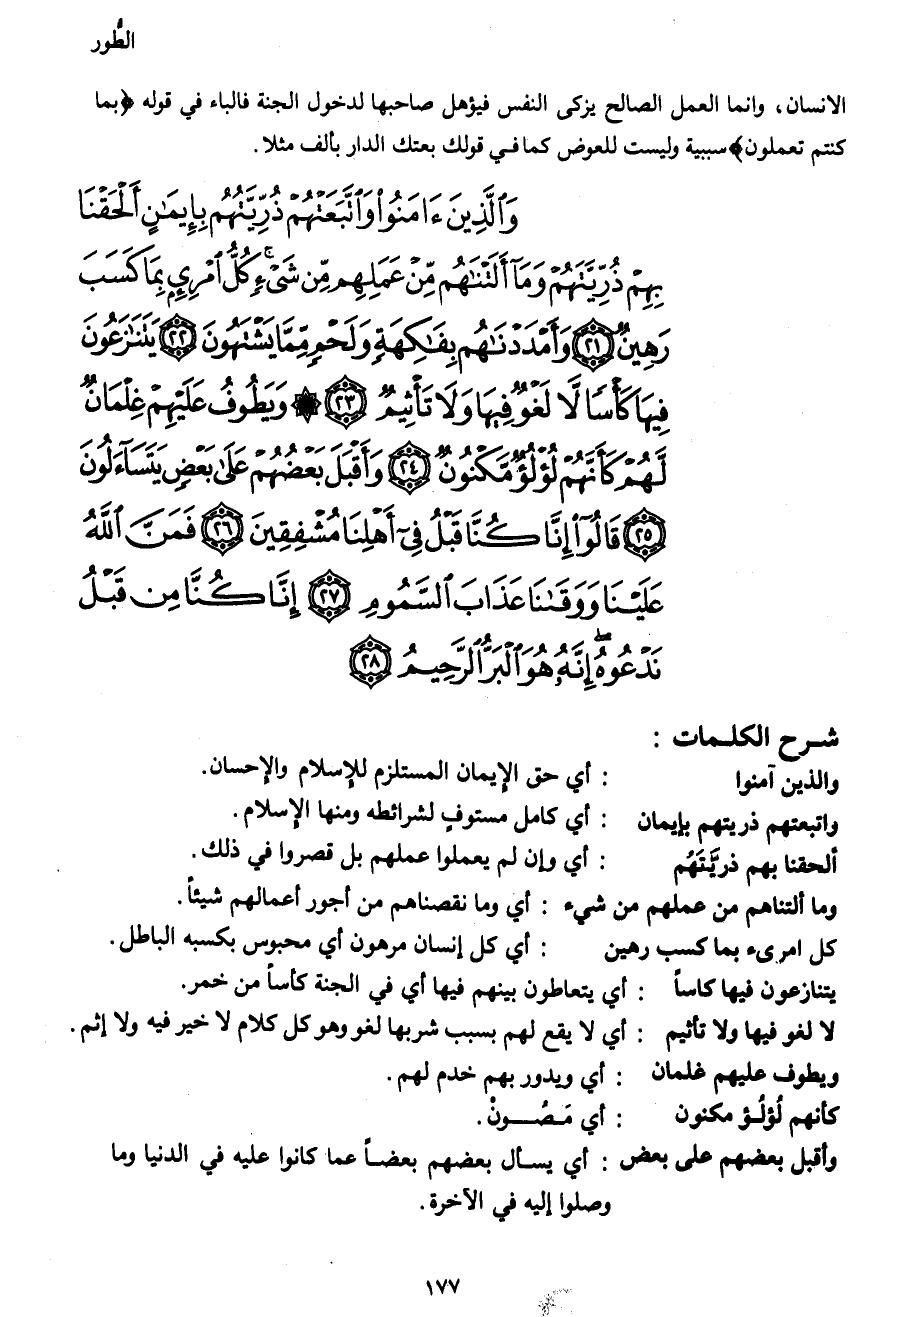 الطُّور
الانسان، وانما العمل الصالح يزكى النفس فيؤهل صاحبها لدخول الجنة فالباء في قوله ﴿بما
كنتم تعملون﴾ سببية وليست للعوض كما في قولك بعتك الدار بألف مثلا.
وَٱلَّذِينَ ءَامَنُوا۟ وَٱتَّبَعَتْهُمْ ذُرِّيَّتُهُم بِإِيمَٰنٍ أَلْحَقْنَا
بِهِمْ ذُرِّيَّتَهُمْ وَمَآ أَلَتْنَٰهُم مِّنْ عَمَلِهِم مِّن شَىْءٍ ۚ كُلُّ ٱمْرِئٍۭ بِمَا كَسَبَ
رَهِينٌ ﴿٢١﴾ وَأَمْدَدْنَٰهُم بِفَٰكِهَةٍ وَلَحْمٍ مِّمَّا يَشْتَهُونَ ﴿٢٢﴾ يَتَنَٰزَعُونَ
فِيهَا كَأْسًا لَّا لَغْوٌ فِيهَا وَلَا تَأْثِيمٌ ﴿٢٣﴾ ۞ وَيَطُوفُ عَلَيْهِمْ غِلْمَانٌ
لَّهُمْ كَأَنَّهُمْ لُؤْلُؤٌ مَّكْنُونٌ ﴿٢٤﴾ وَأَقْبَلَ بَعْضُهُمْ عَلَىٰ بَعْضٍ يَتَسَآءَلُونَ
﴿٢٥﴾ قَالُوٓا۟ إِنَّا كُنَّا قَبْلُ فِىٓ أَهْلِنَا مُشْفِقِينَ ﴿٢٦﴾ فَمَنَّ ٱللَّهُ
عَلَيْنَا وَوَقَىٰنَا عَذَابَ ٱلسَّمُومِ ﴿٢٧﴾ إِنَّا كُنَّا مِن قَبْلُ
نَدْعُوهُ ۖ إِنَّهُۥ هُوَ ٱلْبَرُّ ٱلرَّحِيمُ ﴿٢٨﴾
شرح الكلمات :
والذين آمنوا : أي حق الإيمان المستلزم للإسلام والإحسان.
واتبعتهم ذريتهم بإيمان : أي كامل مستوفٍ لشرائطه ومنها الإسلام.
ألحقنا بهم ذريَّتَهُم : أي وإن لم يعملوا عملهم بل قصروا في ذلك.
وما ألتناهم من عملهم من شيء : أي وما نقصناهم من أجور أعمالهم شيئاً.
كل امرىء بما كسب رهين : أي كل إنسان مرهون أي محبوس بكسبه الباطل.
يتنازعون فيها كاساً : أي يتعاطون بينهم فيها أي في الجنة كأساً من خمر.
لا لغو فيها ولا تأثيم : أي لا يقع لهم بسبب شربها لغو وهو كل كلام لا خير فيه ولا إثم.
ويطوف عليهم غلمان : أي ويدور بهم خدم لهم.
كأنهم لُؤلُؤ مكنون : أي مَصُونْ.
وأقبل بعضهم على بعض : أي يسأل بعضهم بعضاً عما كانوا عليه في الدنيا وما
وصلوا إليه في الآخرة.
١٧٧